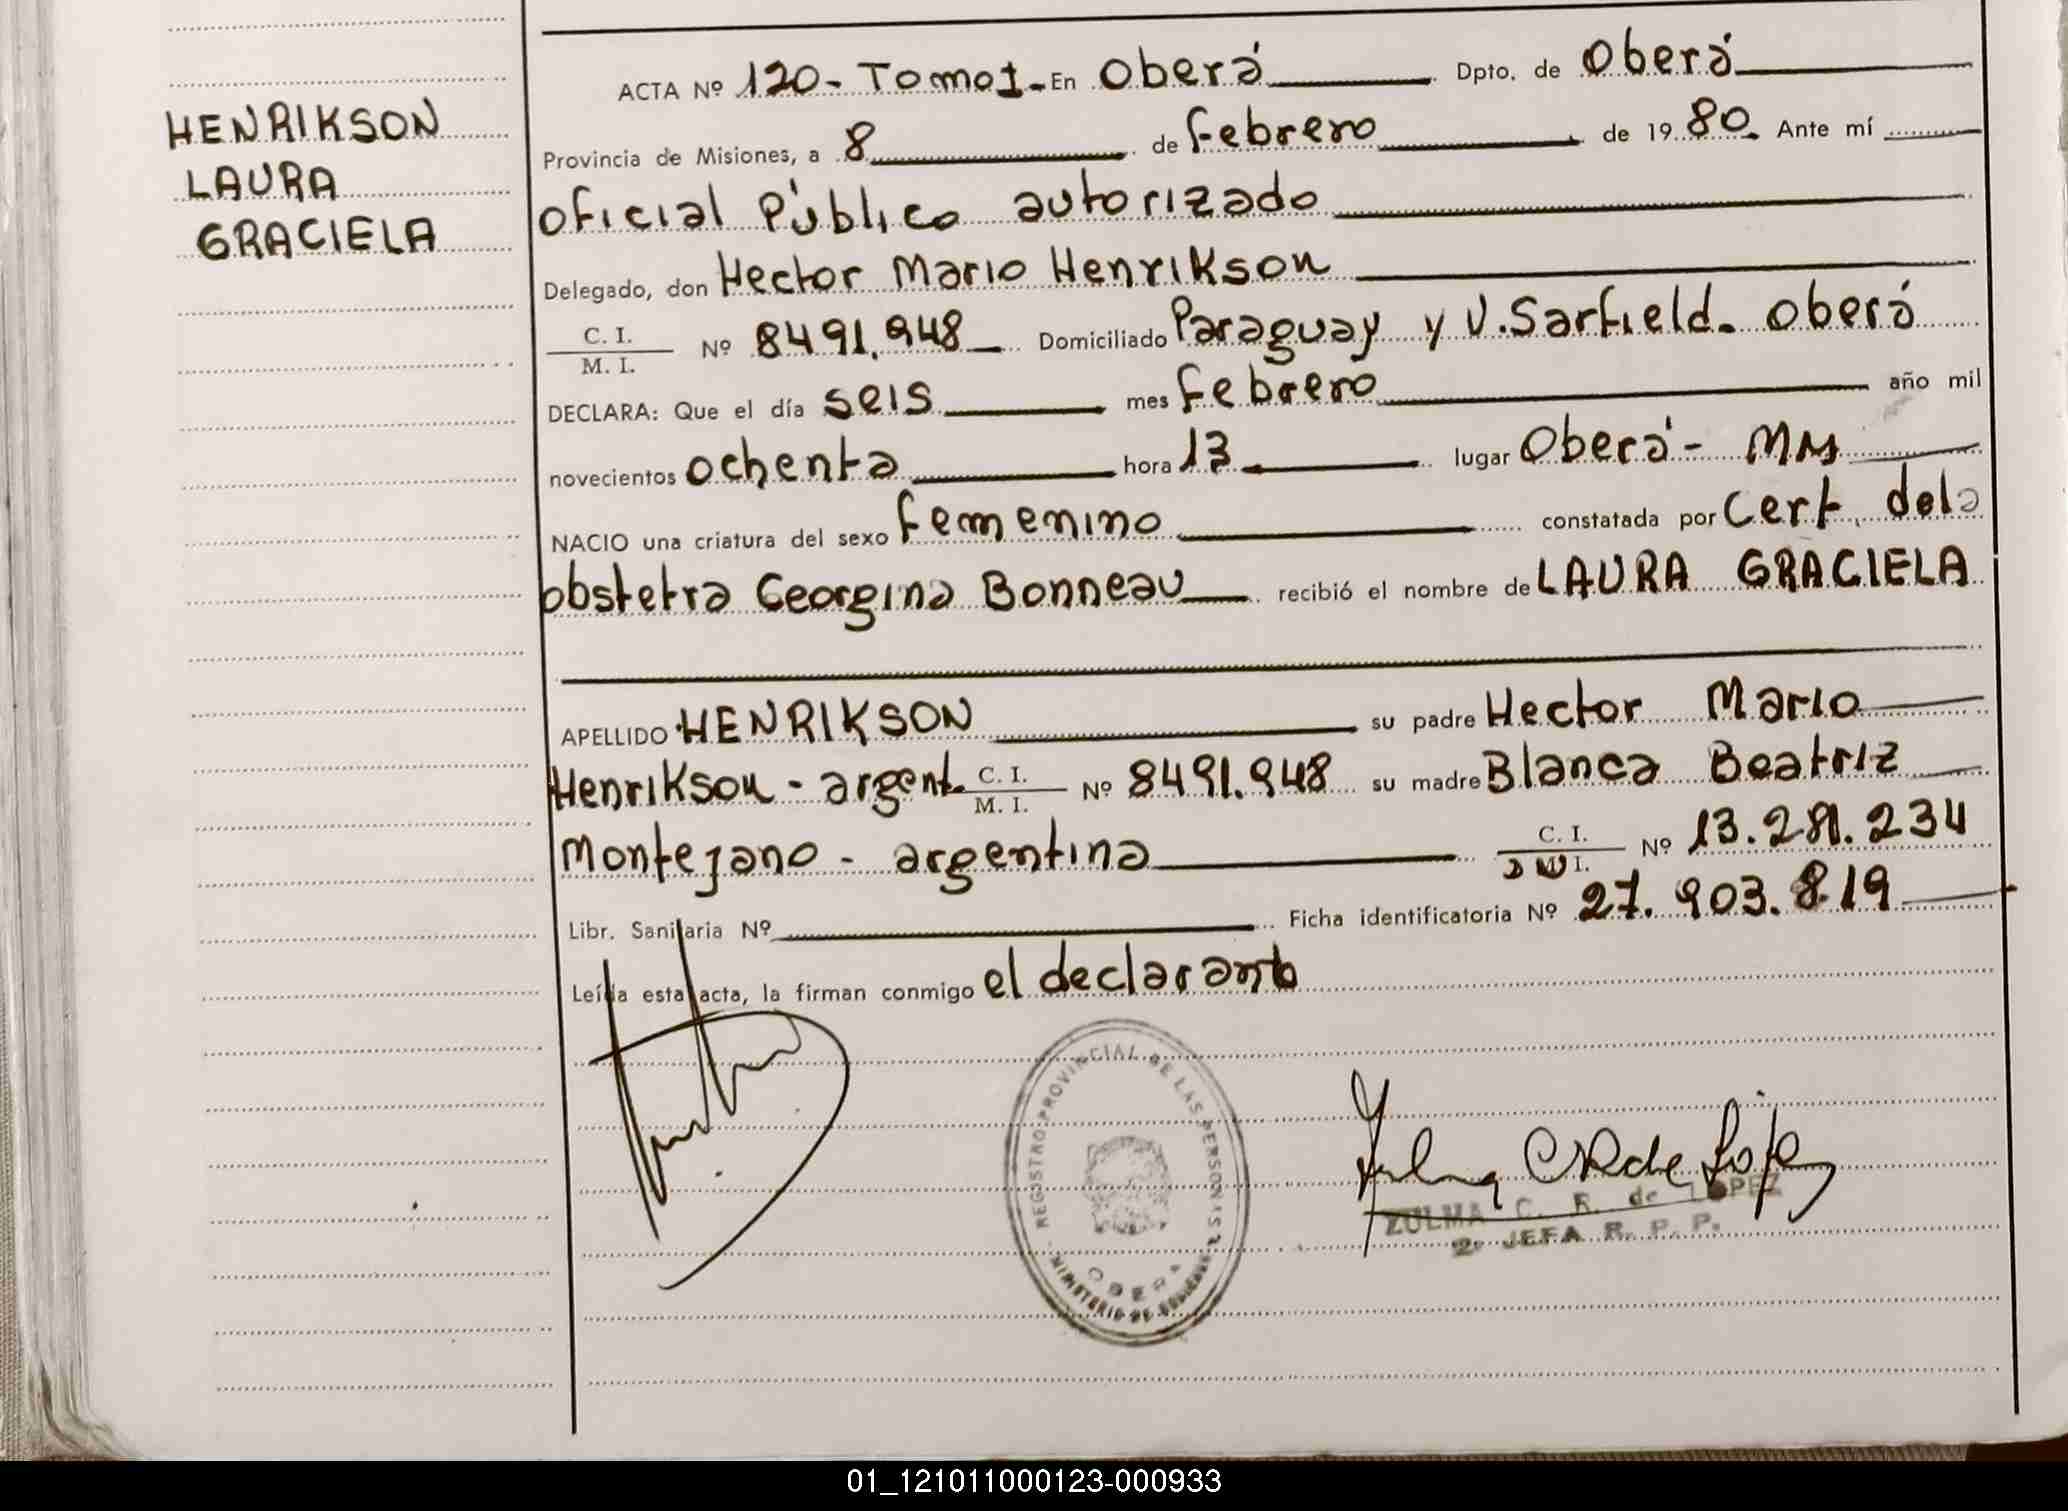 HENRIKSON
LAURA
GRACIELA
ACTA Nº 120 - Tomo 1 - En Oberá Dpto. de Oberá
Provincia de Misiones, a 8 de Febrero de 1980. Ante mí
Oficial Público autorizado
Delegado, don Hector Mario Henrikson
C. I.
M. I. Nº 8491.948 Domiciliado Paraguay y V. Sarfield - Oberá
DECLARA: Que el día seis mes Febrero año mil
novecientos ochenta hora 13 lugar Oberá -
NACIO una criatura del sexo Femenino constatada por Cert. dela
obstetra Georgina Bonneau recibió el nombre de LAURA GRACIELA
APELLIDO HENRIKSON su padre Hector Mario
Henrikson - argent. C. I. M. I. Nº 8491.948 su madre Blanca Beatriz
Montejano - argentina C. I. Nº 13.281.234
Libr. Sanitaria Nº Ficha identificatoria Nº 27.903.819
Leída esta acta, la firman conmigo el declarante
REGISTRO PROVINCIAL DE LAS PERSONAS
OBERA
MINISTERIO DE GOBIERNO
ZULMA C. R. de LOPEZ
2º JEFA R. P. P.
01_121011000123-000933